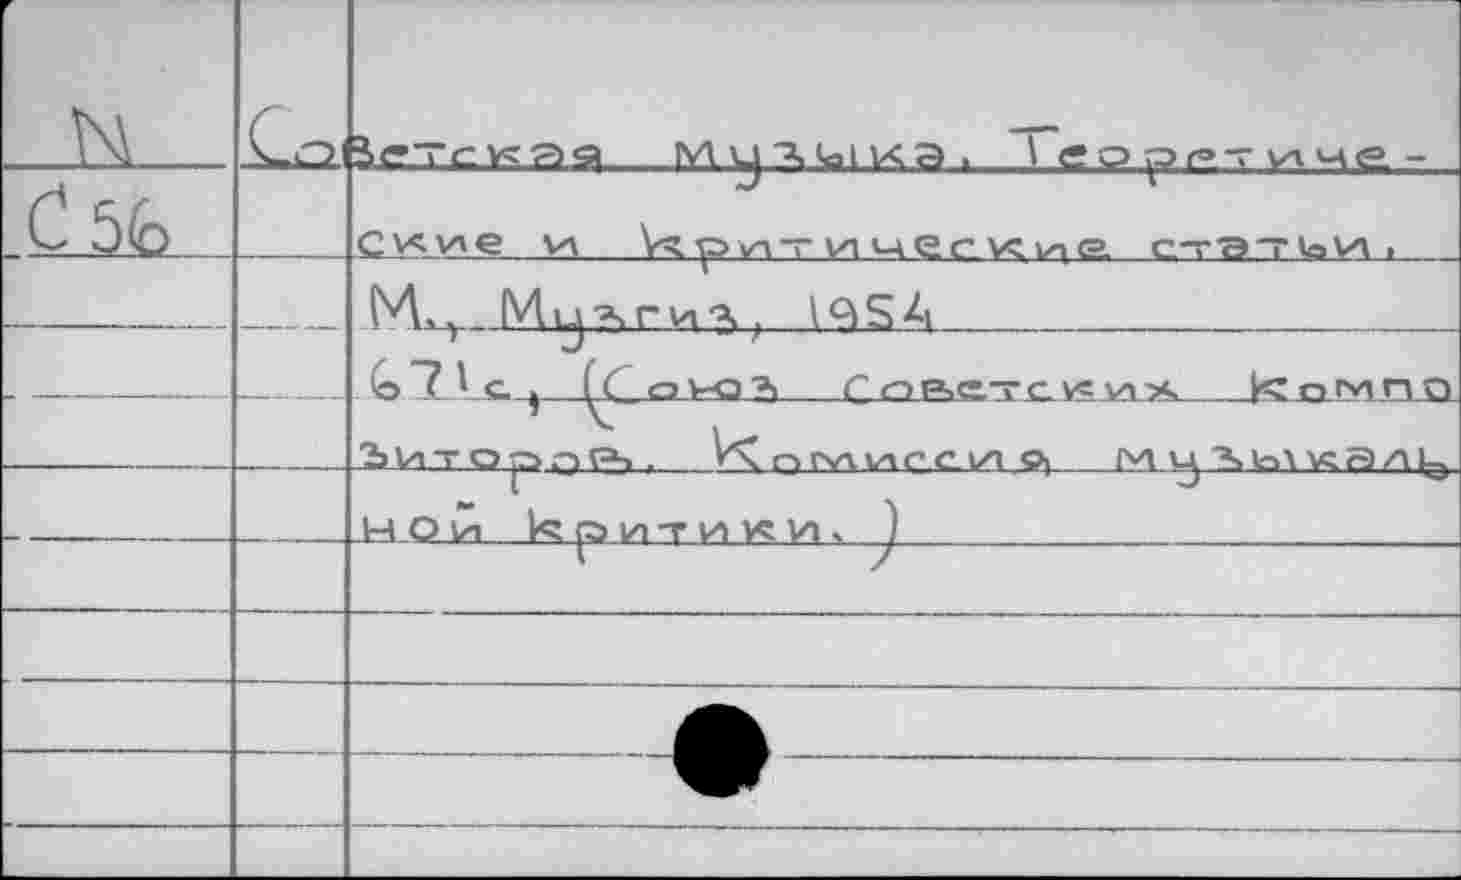 М Советская музыка. Теоретиче-
С 56 ские и критические статьи.
М., Музгиз, 1954
671 с., (Союз Советских Компо
зиторов. Комиссия музыкаль
ной критики.)